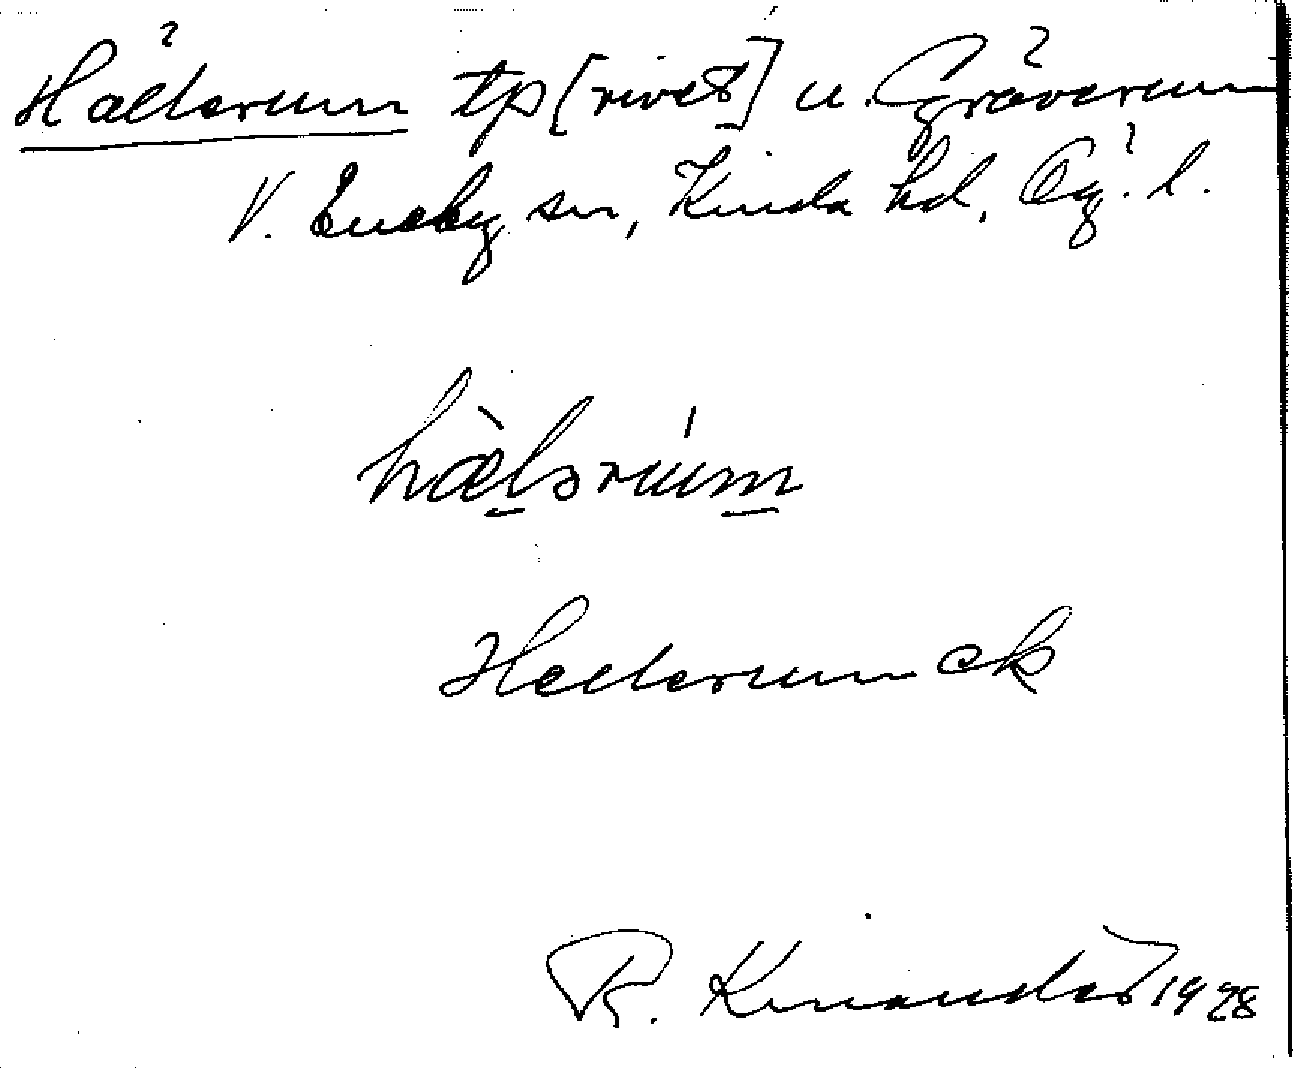 Hällerum tp [rivet] u. Gräverum
V. Eneby sn, Kinda hd, Ög. l.
hæ̀lərúm
Hellerum ek
R. Kinander 1928